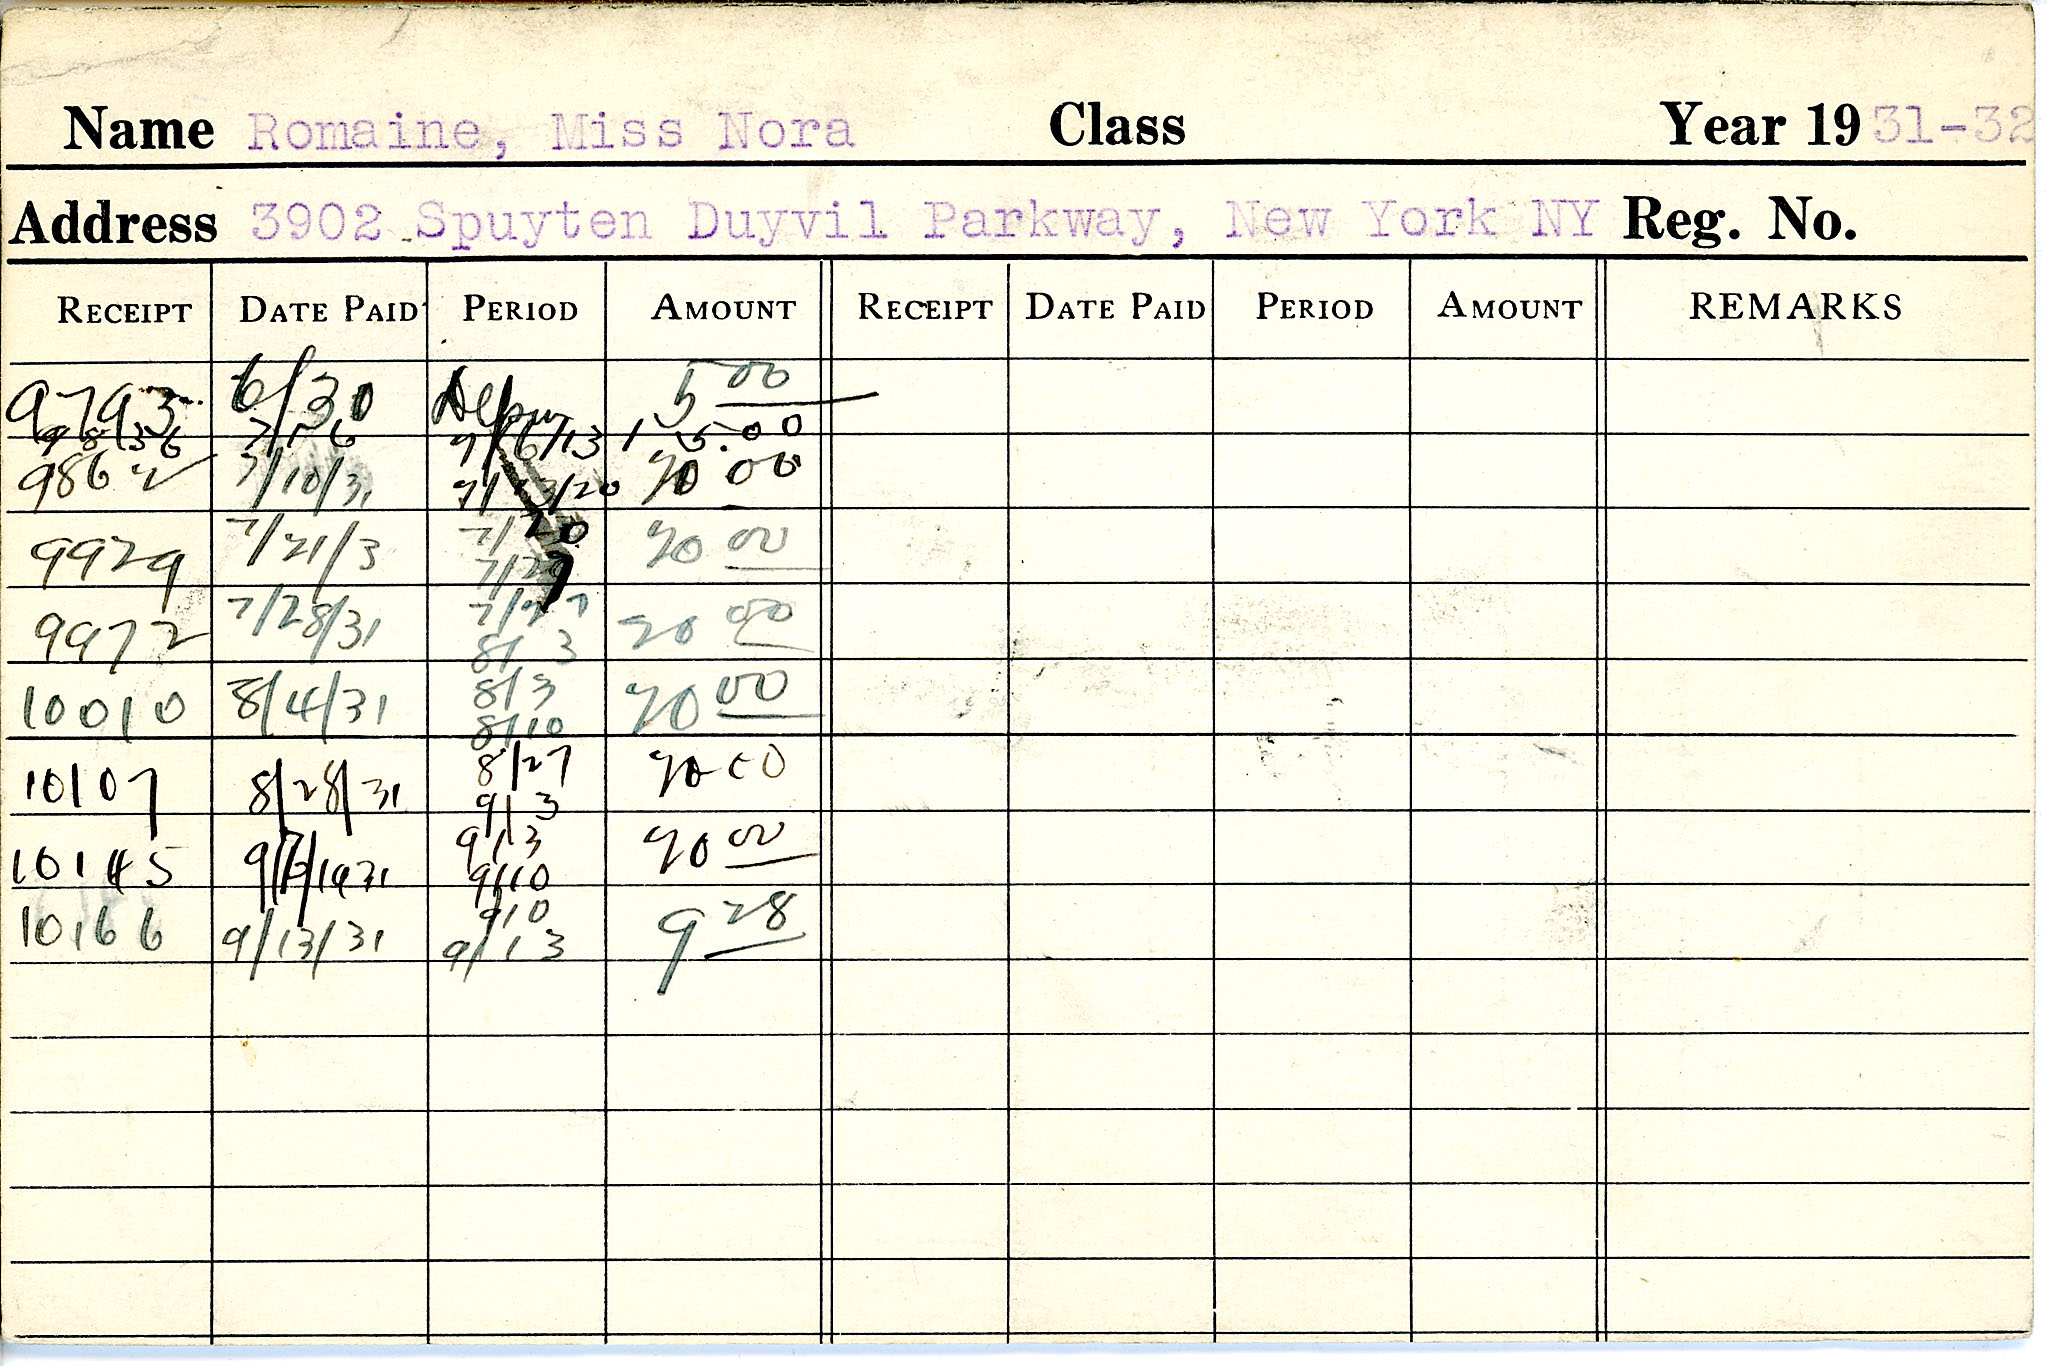 Name Romaine, Miss Nora Class Year 1931-32
Address 3902 Spuyten Duyvil Parkway, New York NY Reg. No.
RECEIPT DATE PAID PERIOD AMOUNT RECEIPT DATE PAID PERIOD AMOUNT REMARKS
9793 6/30 5 00
9836 7/6 7/6/13 15.00
9862 7/10/31 7/13/20 20 00
9929 7/21/3 7/20 20 00
7/27
9972 7/28/31 7/27 20 00
8/3
10010 8/4/31 8/3 20 00
8/10
10107 8/28/31 8/27 20 00
9/3
10145 9/3 20 00
9/10
10166 9/13/31 9/10 9 28
9/13